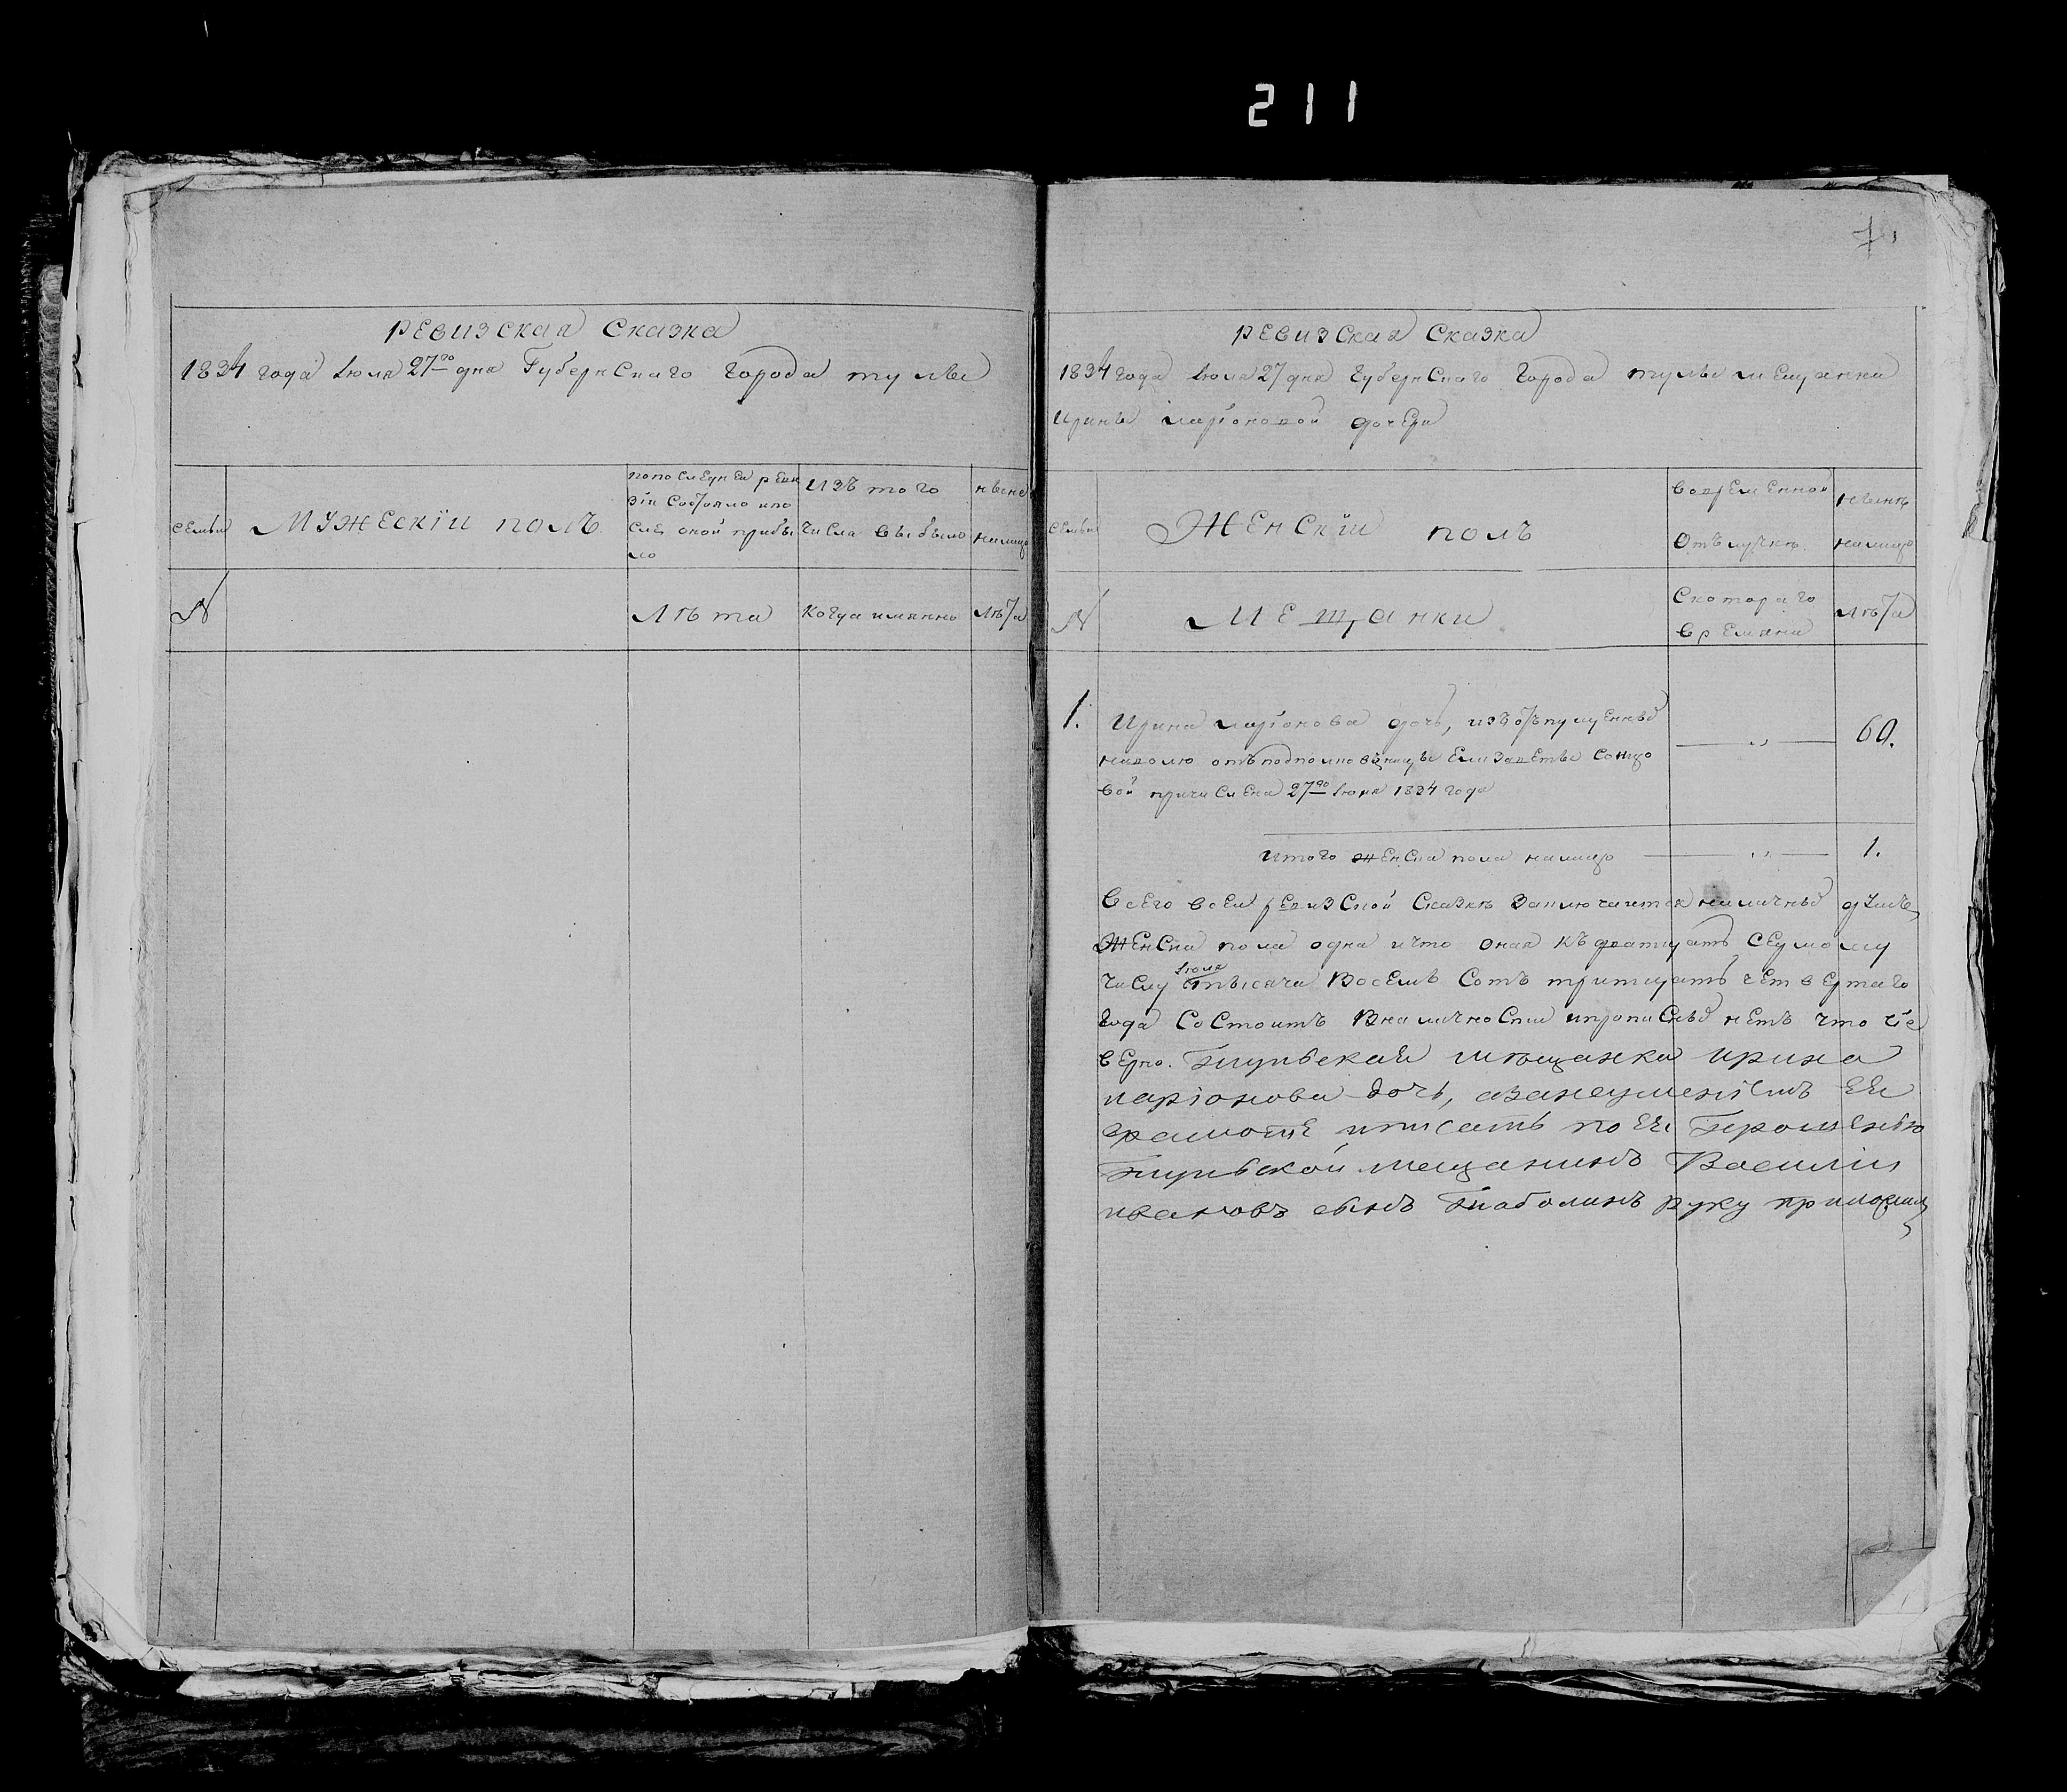 211
Ревизская Сказка
1834 года Iюля 27го дня Губернскаго Города тулы
семьи
Мужескїи полъ
попоследнеи реви
зiи Состояло ипо
сле оной прибы
ло
Изъ того
числа выбыло
ныне
налицо
N
Лѣта
Когда имянно
лѣта
Ревизская Сказка
1834 года Iюля 27 дня Губернскаго Города тулы мещанки
Ирины ларiоновой дочери
семьи
Женскїи полъ
вовременной
отълучкѣ
нынѣ
налицо
N
Мещанки
Скотораго
времяни
лѣта
1. Ирина ларiонова дочь, изъ отъпущенныхъ
наволю отъ подполковницы Елизаветы
вой причислена 27го Iюня 1834 года
60.
Итого женска пола налицо 1.
Всего всеи ревизской Сказкѣ Заключаитса наличныхъ душъ,
Женска пола одна ичто оная къ дватцать седмому
числу Iюля тысяча Восемь Сотъ тритцать четвертаго
года Состоитъ Вналичности ипрописныхъ нетъ что
верно. Тульская мѣщанка ирина
ларiонова дочь, азанеуменiемъ ея
грамоте иписать по ея прошенью
тульской мещанинъ Василiи
ивановъ сынъ Таболинъ руку приложилъ